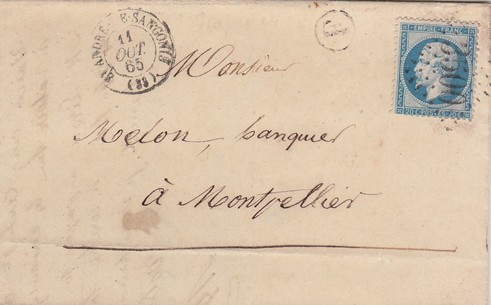 ST ANDRE-DE-SANGONIS
11
OCT.
65
(33)
EMPIRE FRANC
20 C POSTES 20 C
Monsieur
Melon, banquier
à Montpellier